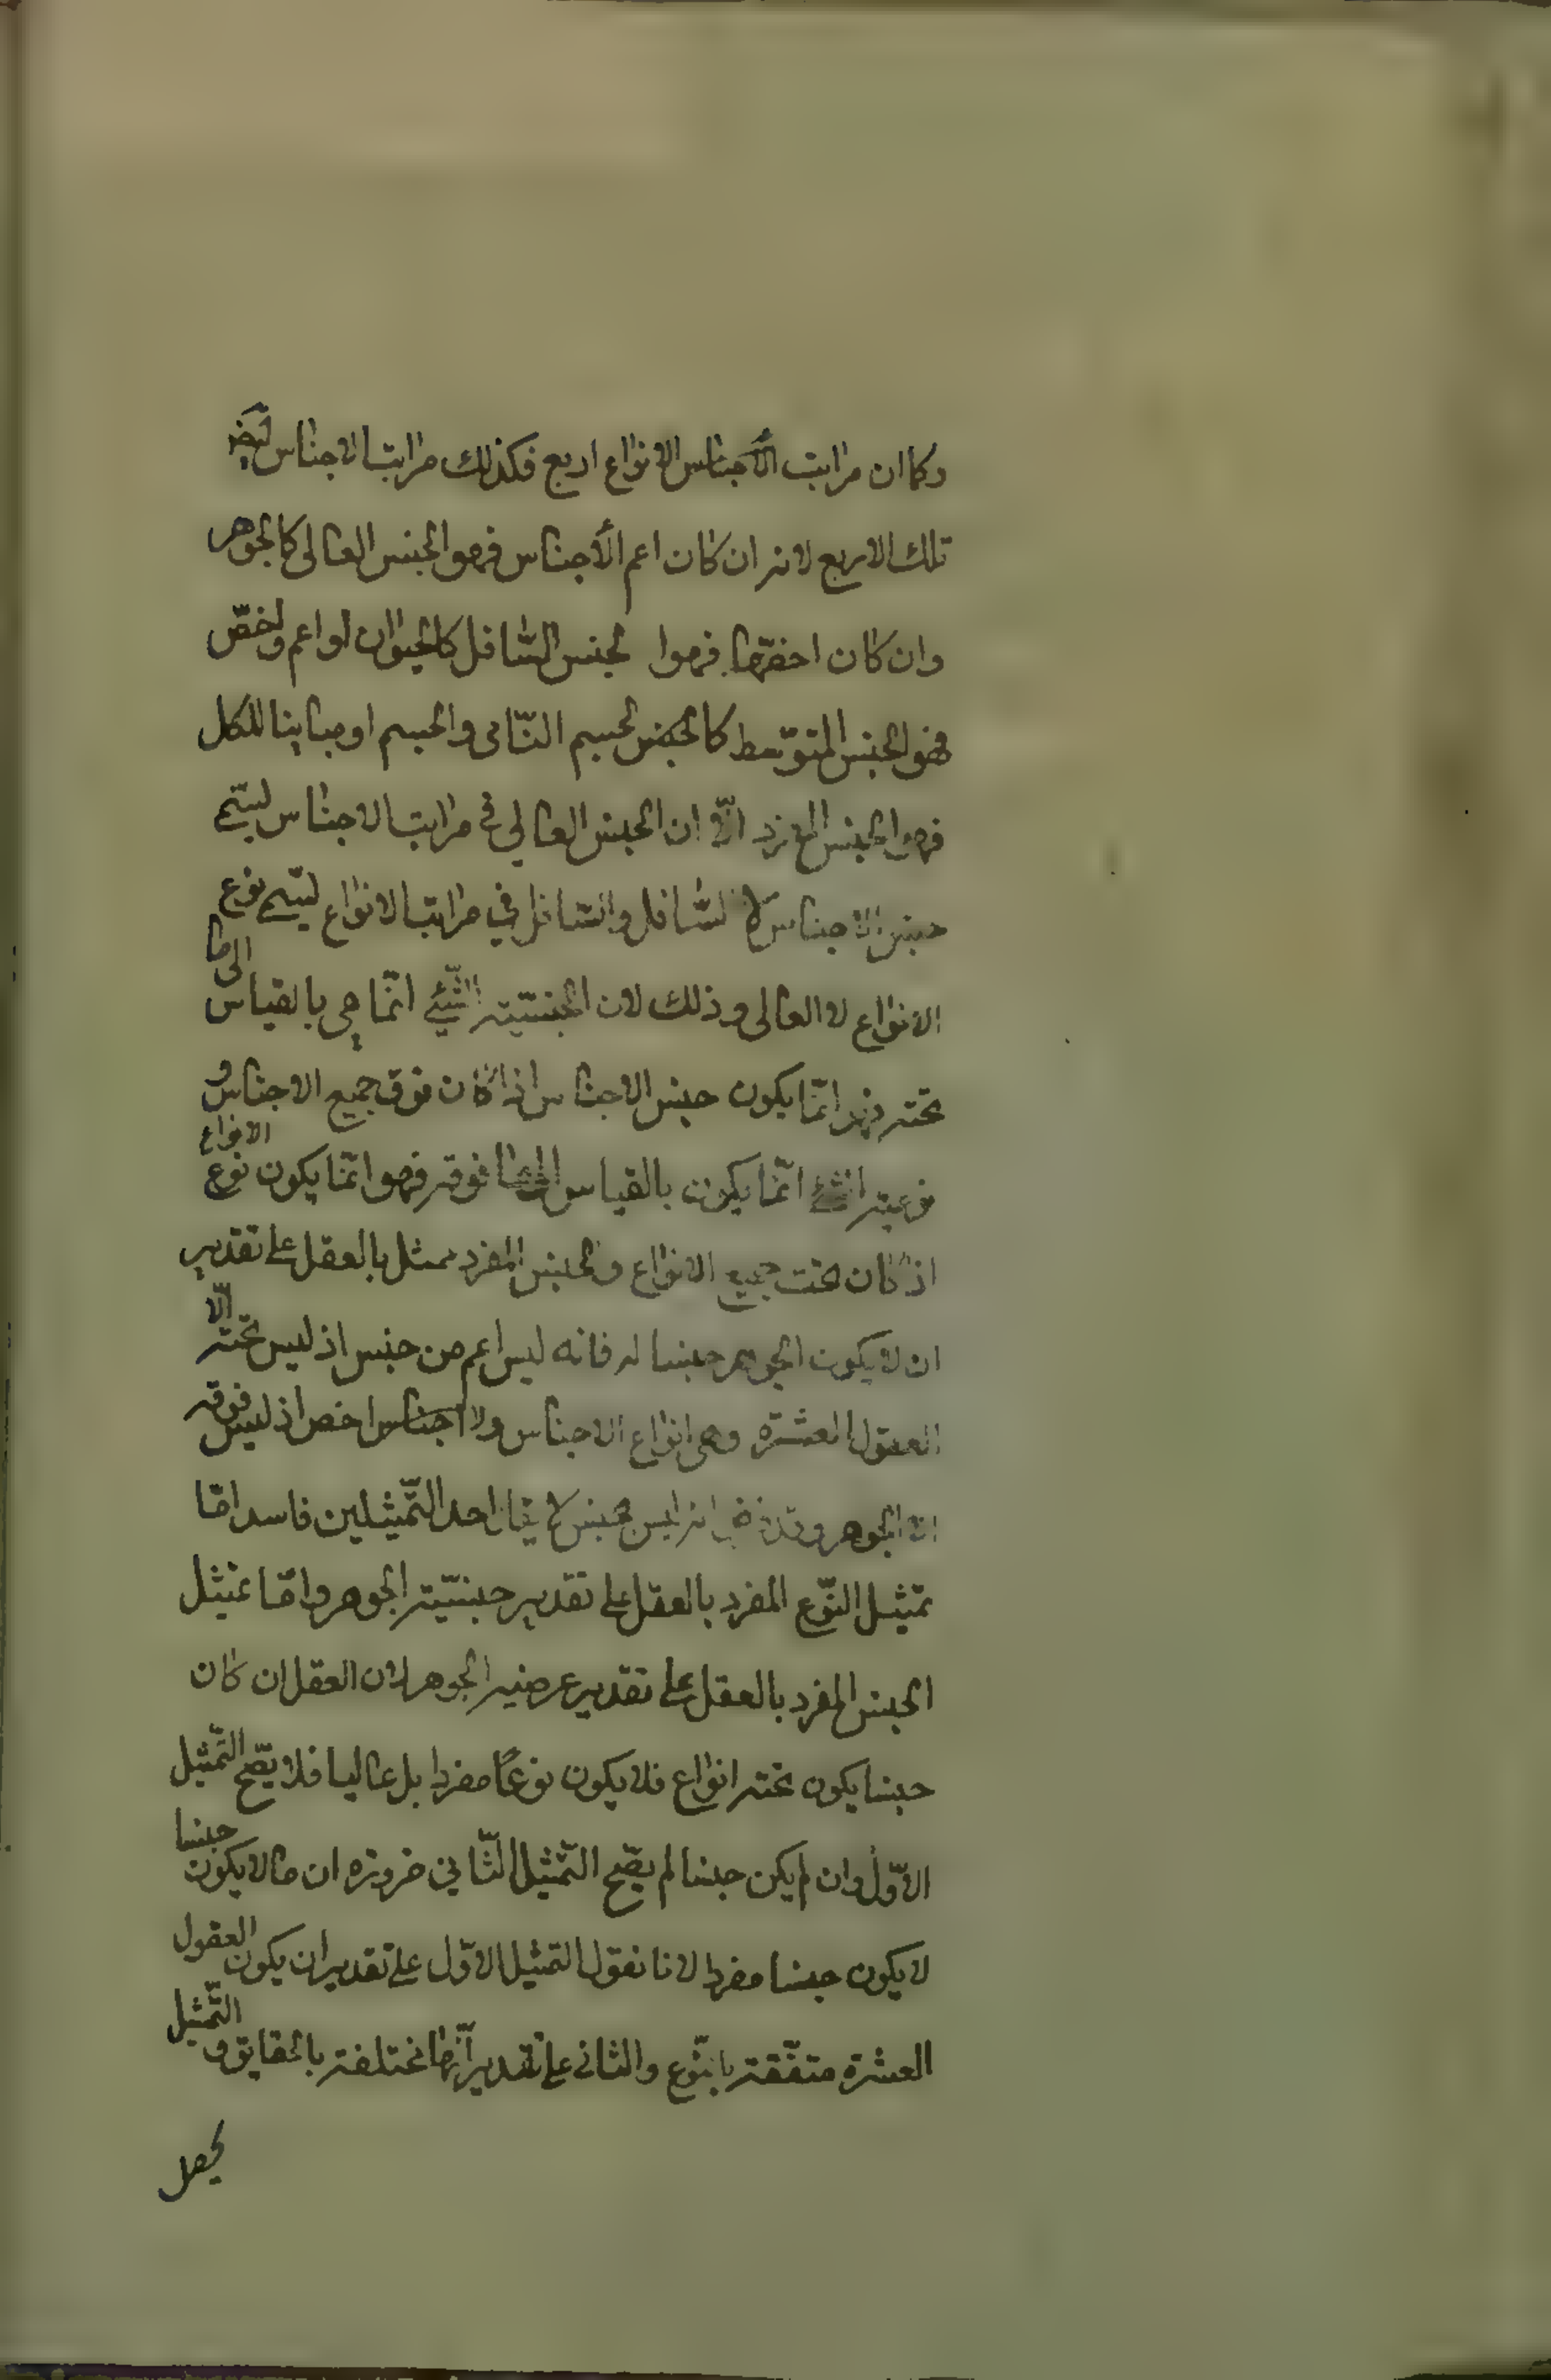 وكما ان مراتب الأجناس الانواع اربع فكذلك مراتب الاجناس ايضا
تلك الاربع لانه ان كان اعم الأجناس فهو الجنس العالى كالجوهر
وان كان اخصّها فهوا لجنس السّافل كالحيوان او اعم واخصّ
فهو الجنس المتوسّط كالجنس لجسم النّامى والجسم او مباينا للكل
فهو الجنس المفرد الّا ان الجنس العالي في مراتب الاجناس يسمّى
جنس الاجناس لا لسّافل والسّافل في مراتب الانواع يسمّى نوع
الانواع لا العالى وذلك لان الجنسيّته الشّيئ انّما هي بالقياس الى ما
تحته فهو انّما يكون جنس الاجناس اذا كان فوق جميع الاجناس و
نوعيته الشئ انّما يكون بالقياس الى ما فوقه فهو انّما يكون نوع الانواع
اذا كان تحت جميع الانواع والجنس المفرد ممثل بالعقل على تقدير
ان لا يكون الجوهر جنسا له فانه ليس اعم من جنس اذ ليس تحته الّا
العقول العشرة وهى انواع الاجناس ولا اجناس اخص اذ ليس فوقه
الا الجوهر وقد فرض انه ليس بجنس لا يقال احد التّمثيلين فاسد امّا
تمثيل النّوع المفرد بالعقل على تقدير جنسيّته الجوهر وامّا تمثيل
الجنس المفرد بالعقل على تقدير عرضيه الجوهر لان العقل ان كان
جنسا يكون تحته انواع فلا يكون نوعًا مفردا بل عاليا فلا يصّح التّمثيل
الاوّل وان لم يكن جنسا لم يصّح التّمثيل الثّاني ضرورة ان ما لا يكون جنسا
لا يكون جنسا مفردا لانا نقول التمثيل الاوّل على تقدير ان يكون العقول
العشرة متفّقة بالنّوع والثانى على تقدير انّها مختلفة بالحقايق والتّمثيل
يحصل